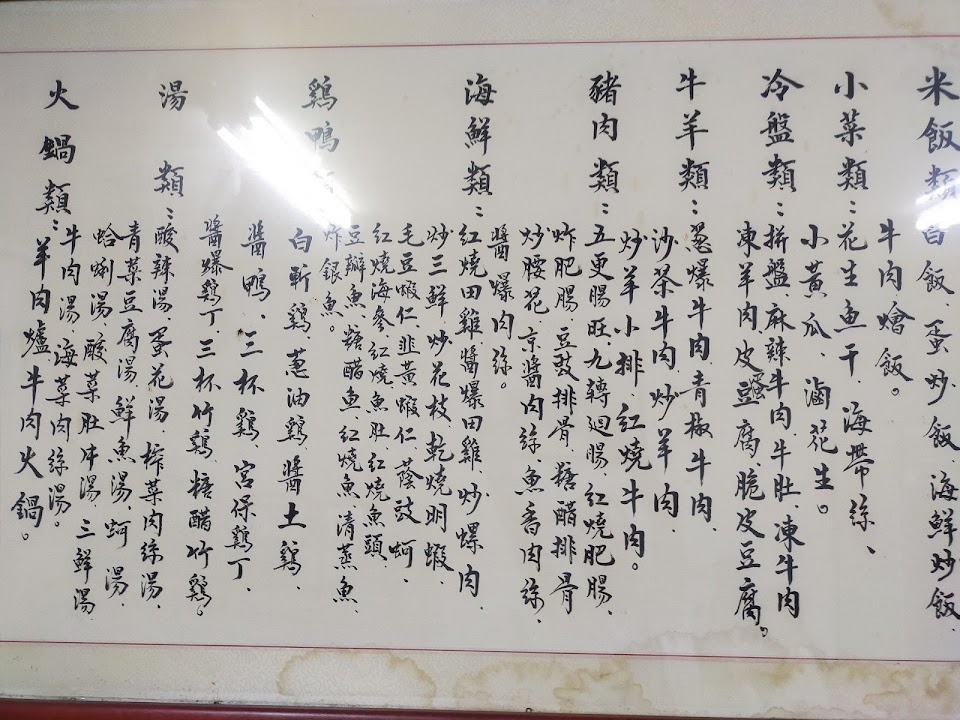 米飯類 飯、蛋炒飯、海鮮炒飯、
牛肉燴飯。
小菜類：花生魚干、海帶絲、
小黃瓜、滷花生。
冷盤類：拼盤、麻辣牛肉、牛肚、凍牛肉
凍羊肉、皮蛋豆腐、脆皮豆腐。
牛羊類：葱爆牛肉、青椒牛肉、
沙茶牛肉、炒羊肉、
炒羊小排、紅燒牛肉。
豬肉類：五更腸旺、九轉迴腸、紅燒肥腸、
炸肥腸、豆豉排骨、糖醋排骨
炒腰花、京醬肉絲、魚香肉絲、
醬爆肉絲。
海鮮類：紅燒田雞、醬爆田雞、炒螺肉、
炒三鮮、炒花枝、乾燒明蝦、
毛豆蝦仁、韭黃蝦仁、蔭豉蚵、
紅燒海參、紅燒魚肚、紅燒魚頭、
豆瓣魚、糖醋魚、紅燒魚、清蒸魚
炸銀魚。
鷄鴨 白斬鷄、葱油鷄、醬土鷄、
醬鴨、三杯鷄、宮保鷄丁、
醬爆鷄丁、三杯竹鷄、糖醋竹鷄。
湯類：酸辣湯、蛋花湯、榨菜肉絲湯、
青菜豆腐湯、鮮魚湯、蚵湯、
蛤唎湯、酸菜肚片湯、三鮮湯、
牛肉湯、海菜肉絲湯。
火鍋類：羊肉爐、牛肉火鍋。